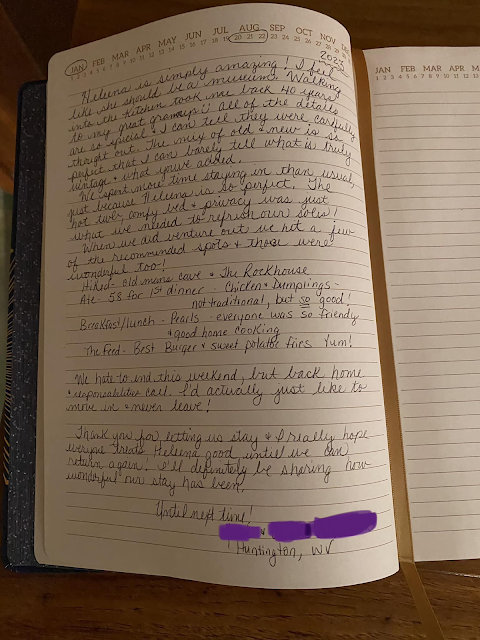 JAN FEB MAR APR MAY JUN JUL AUG SEP OCT NOV DEC
1 2 3 4 5 6 7 8 9 10 11 12 13 14 15 16 17 18 19 20 21 22 23 24 25 26 27 28
2023
Heleena is simply amazing! I feel
like she should be a museum. Walking
into the kitchen took me back 40 years
to my great granny's! All of the details
are so special & I can tell they were carefully
thought out. The mix of old & new is so
perfect that I can barely tell what is truly
vintage & what you've added.
We spent more time staying in than usual,
just because Heleena is so perfect. The
hot tub, comfy bed & privacy was just
what we needed to refresh our souls!
When we did venture out we hit a few
of the recommended spots & those were
wonderful too!
Hiked - old mans cave & The Rockhouse
Ate - 58 for 1st dinner - Chicken & Dumplings -
not traditional, but so good!
Breakfast/lunch - Pearls - everyone was so friendly
& good home cooking
The Feed - Best Burger & sweet potatoe fries Yum!
We hate to end this weekend, but back home
& responsabilities call. I'd actually just like to
move in & never leave!
Thank you for letting us stay & I really hope
everyone treats Heleena good until we can
return again! I'll definitely be sharing how
wonderful our stay has been.
Until next time!
&
Huntington, WV
JAN FEB MAR APR M
1 2 3 4 5 6 7 8 9 10 11 12